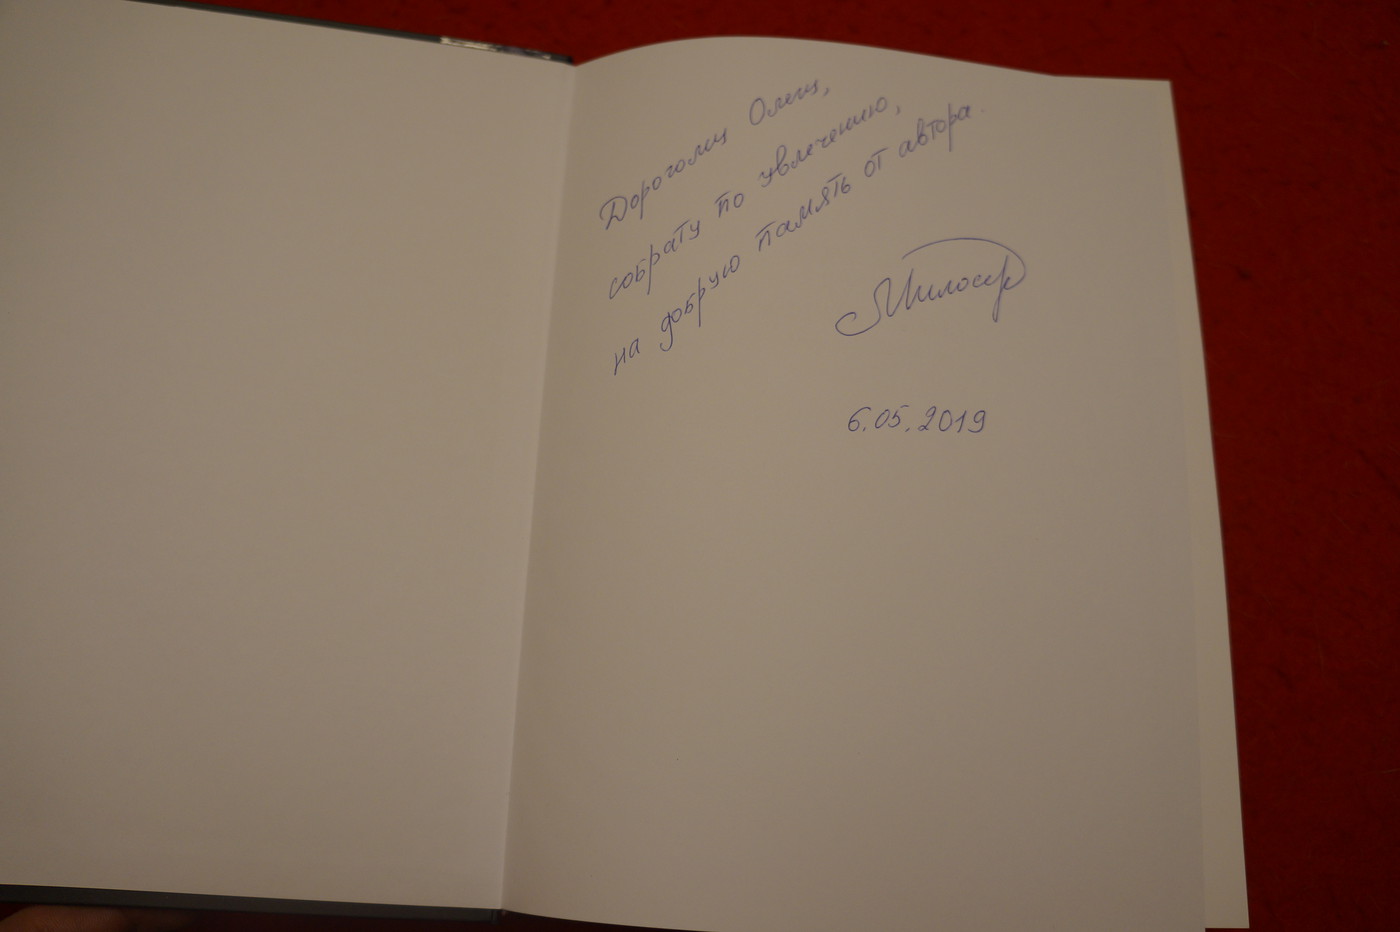 Дорогому Олегу,
собрату по увлечению,
на добрую память от автора.
6.05.2019